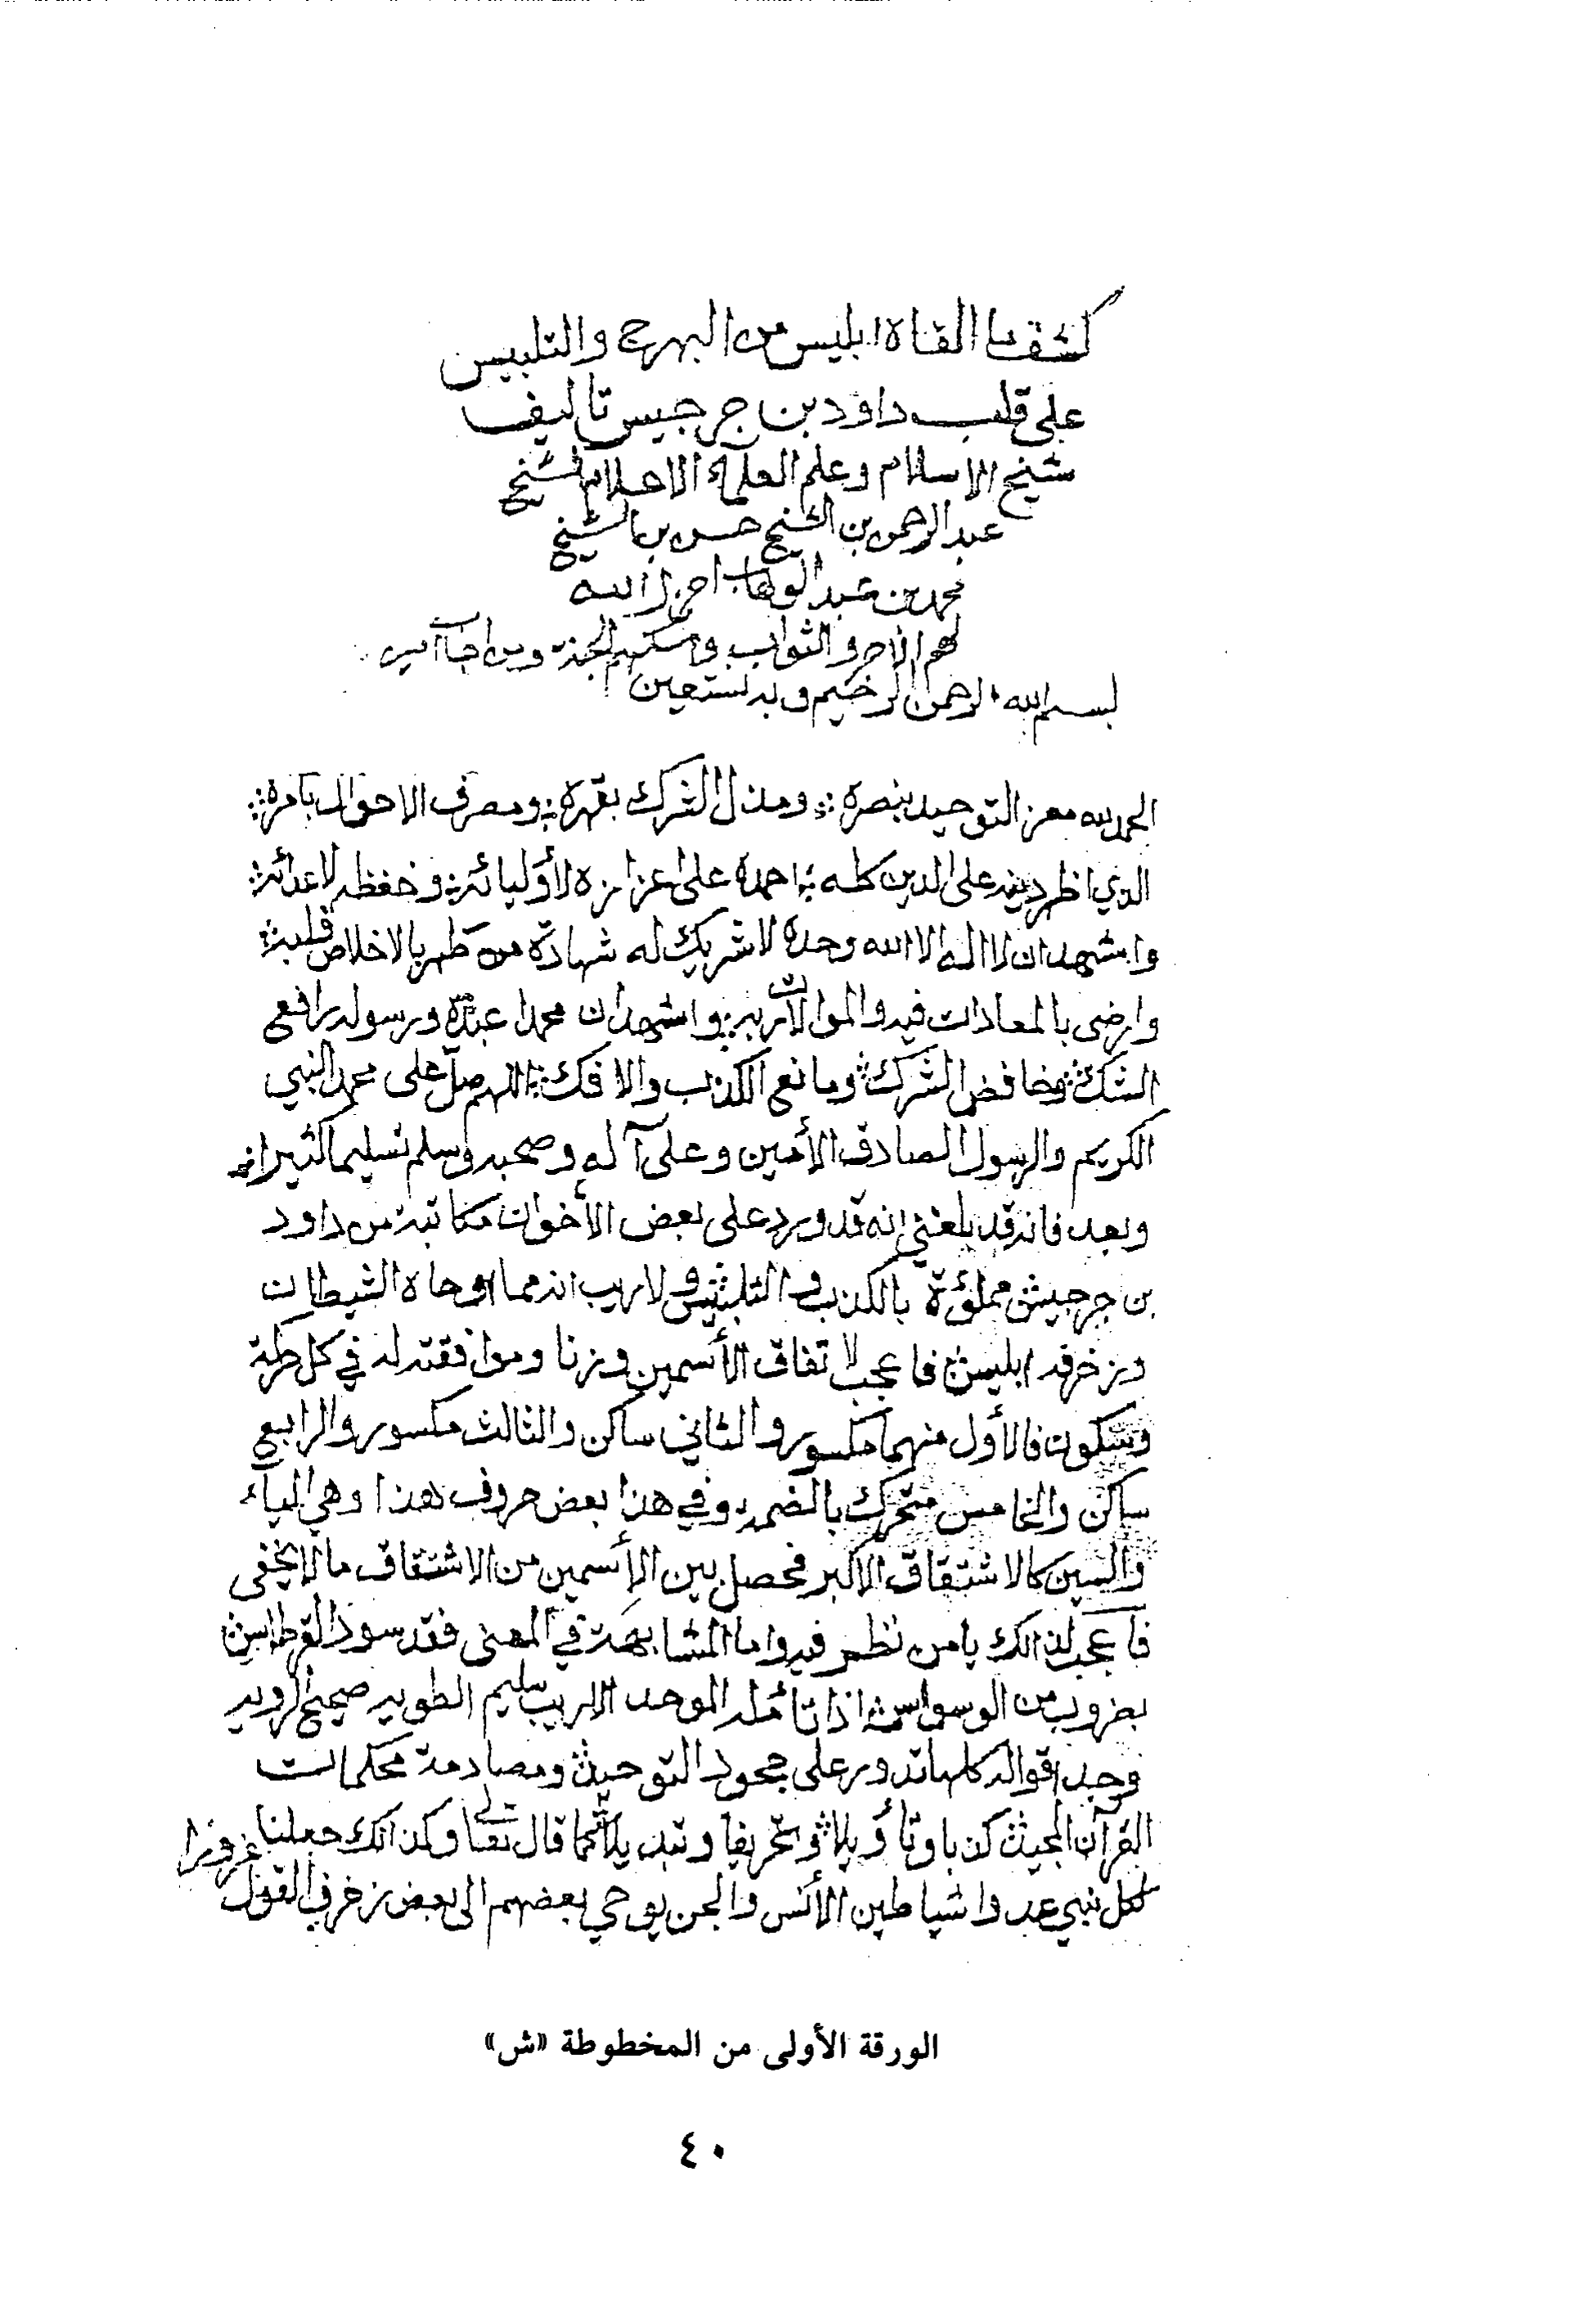 كشف ما القاه ابليس من البهرج والتلبيس
على قلب داود بن جرجيس تاليف
شيخ الاسلام وعلم العلماء الاعلام الشيخ
عبد الرحمن بن الشيخ حسن بن الشيخ
محمد بن عبد الوهاب اجزل الله
لهم الاجر والثواب واسكنهم الجنة آمين
بسم الله الرحمن الرحيم وبه نستعين
الحمد لله معز التوحيد بنصره ومذل الشرك بقهره ومصرف الاحوال بامره
الذي اظهر دينه على الدين كله احمده على اعزازه لأوليائه وخفظه لاعدائه
واشهد ان لا اله الا الله وحده لا شريك له شهادة من طهر بالاخلاص قلبه
وارضى بالمعادات فيه والموالات به واشهد ان محمدا عبده ورسوله رافع
الشك وخافض الشرك ومانع الكذب والافك اللهم صل على محمد النبي
الكريم والرسول الصادق الأمين وعلى آله وصحبه وسلم تسليما كثيرا
وبعد فانه قد بلغني انه قد ورد على بعض الأخوان مكاتبة من داود
بن جرجيس مملؤة بالكذب والتلبيس ولا ريب انه مما اوحاه الشيطان
وزخرفه ابليس فاعجب لا تفاق الأسمين وزنا وموافقته له في كل حركة
وسكون فالأول منهما مكسور والثاني ساكن والثالث مكسور والرابع
ساكن والخامس متحرك بالضمه وفي هذا بعض حروف هذا وهي الياء
والسين كالاشتقاق الاكبر فحصل بين الأسمين من الاشتقاق ما لا يخفى
فاعجب لذالك يا من نظر فيه واما المشابهة في المعنى فقد سود القرطاس
بضروب من الوسواس اذا تأمله الموحد الاريب سليم الطويه صحيح الرويه
وجد اقواله كلها تدور على جحود التوحيد ومصادمة محكمات
القرآن المجيد كذبا وتأويلا وتحريفا وتبديلا كما قال تعالى وكذالك جعلنا
لكل نبي عدوا شياطين الأنس والجن يوحي بعضهم الى بعض زخرف القول غرورا
الورقة الأولى من المخطوطة «ش»
٤٠